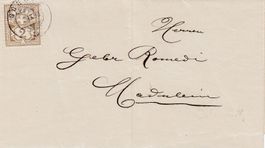 Herren
Gebr Romedi
Madulein